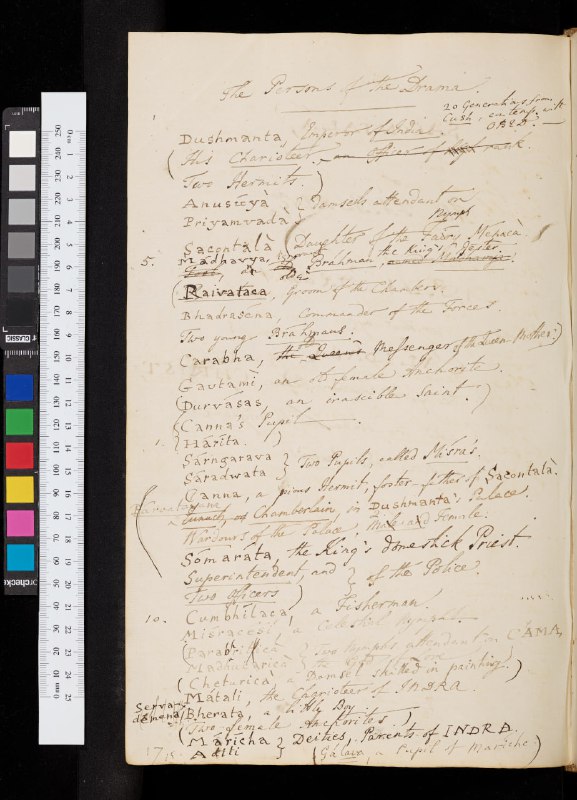 The Persons of the Drama.
20 Generations from
Cush, contemp. with
OBED.
Dushmanta Emperor of India.
(His Charioteer, an Officer of rank.
Two Hermits.)
Anusúya } Damsels attendant on
Priyamvadá
Nymph
Sacontalá (Daughter of the Fairy Ménacà.
5. Mádhavya, Brahman, the King's Jester.
Raivataca, Groom of the Chamber.
Bhadraséna, Commander of the Forces.
Two young Bráhmans.
Carabha, the Queen's Messenger of the Queen Mother.)
Gautamì, an old female Anchorite.
(Durvásas, an irascible Saint.)
(Canna's Pupil.
1. } Hárita. )
Sárngarava } Two Pupils, called Misra's.
Sáradwata
Canna, a pious Hermit, foster-father of Sacontalà.
a Eunuch, or Chamberlain, in Dushmanta's Palace.
Wardours of the Palace, Male and Female.
Sómaráta, the King's domestick Priest.
Superintendent, and } of the Police.
Two Officers )
10. Cumbhílaca, a Fisherman.
Misracési, a Celestial Nymph.
(Parabhritica } two Nymphs attendant on CÁMA,
Madhucaricà
(Cheturicà, a Damsel skilled in painting.)
Mátali, the Charioteer of INDRA.
Serva-
demena
Bherata, a little Boy
(Two female Anchorites.)
Márícha } Deities, Parents of INDRA.
Aditi } (Gálava, a Pupil of Máríche)
17